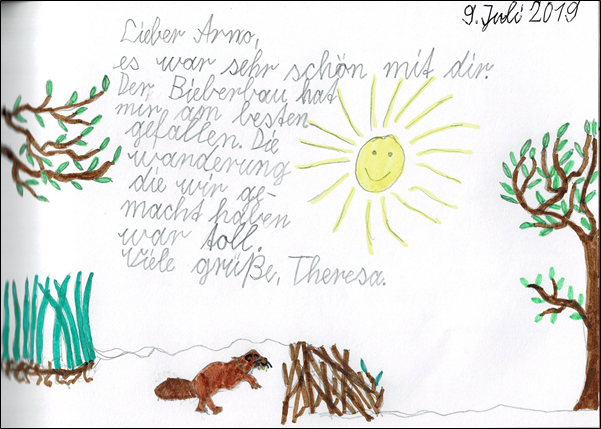 9. Juli 2019
Lieber Arno,
es war sehr schön mit dir.
Der Bieberbau hat
mir am besten
gefallen. Die
wanderung
die wir ge-
macht haben
war toll.
Viele grüße, Theresa.